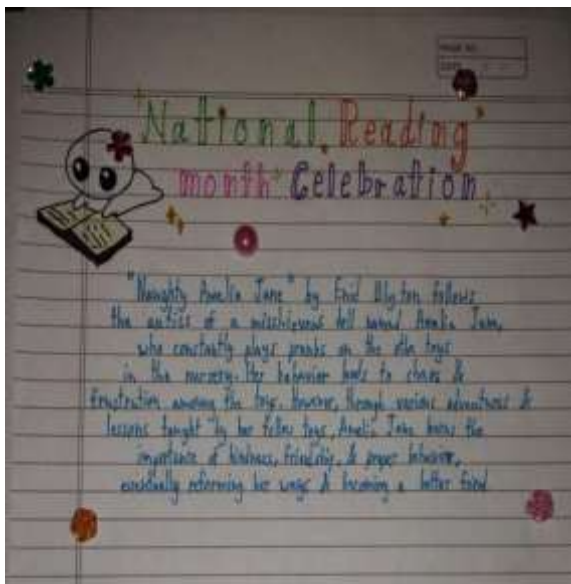 PAGE NO.
DATE
National Reading
month Celebration
"Naughty Amelia Jane" by Enid Blyton follows
the antics of a mischievous doll named Amelia Jane,
who constantly plays pranks on the other toys
in the nursery. Her behavior leads to chaos &
frustration among the toys. However, through various adventures &
lessons taught by her fellow toys, Amelia Jane learns the
importance of kindness, friendship, & proper behavior,
eventually reforming her ways & becoming a better friend